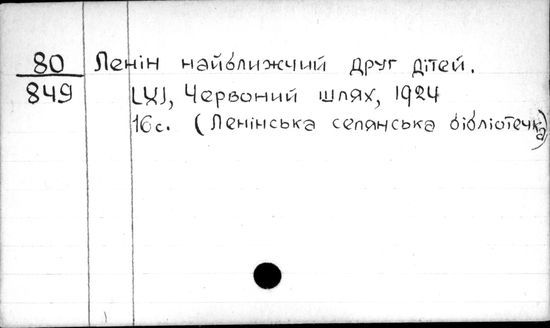 80 Ленін найближчий друг дітей.
849 [Х], Червоний шлях, 1924
16с. (Ленінська селянська бібліотечка)